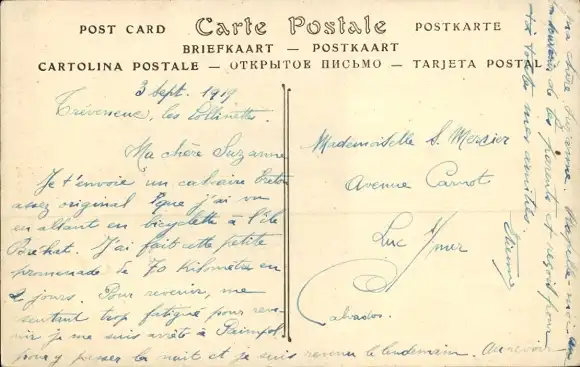 POST CARD Carte Postale POSTKARTE
BRIEFKAART — POSTKAART
CARTOLINA POSTALE — ОТКРЫТОЕ ПИСЬМО — TARJETA POSTAL
3 Sept. 1919
Tréveneuc, les Collinettes.
Ma chère Suzanne
Je t'envoie un calvaire breton
assez original que j'ai vu
en allant en bicyclette à l'île
Bréhat. J'ai fait cette petite
promenade de 70 kilomètres en
2 jours. Pour revenir, me
sentant trop fatigué pour reve-
nir je me suis arrêté à Paimpol
pour y passer la nuit et je suis revenu le lendemain. Au revoir
ma chère Suzanne. Rappelle-moi au
souvenir de tes parents et reçois pour
toi toutes mes amitiés.
Etienne
Mademoiselle S. Mercier
Avenue Carnot
Luc s/mer
Calvados.